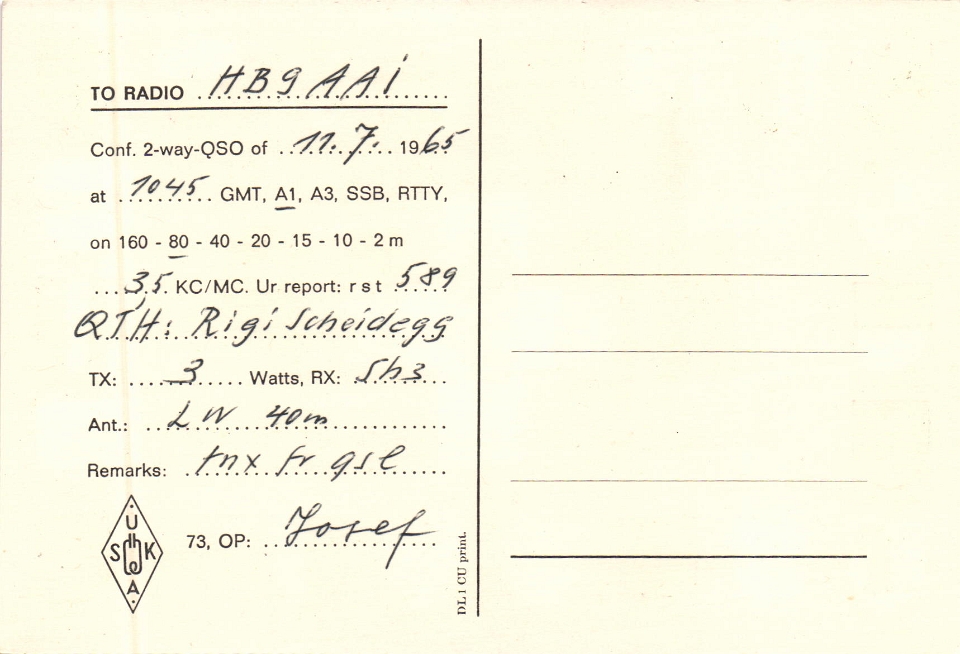 TO RADIO HB9AAi
Conf. 2-way-QSO of 11.7. 1965
at 1045 GMT, A1, A3, SSB, RTTY,
on 160 - 80 - 40 - 20 - 15 - 10 - 2 m
3,5 KC/MC. Ur report: r s t 589
QTH: Rigi Scheidegg
TX: 3 Watts, RX: 5h3
Ant.: LW 40m
Remarks: tnx fr qsl
73, OP: Josef
U
S K
A
DL1CU print.